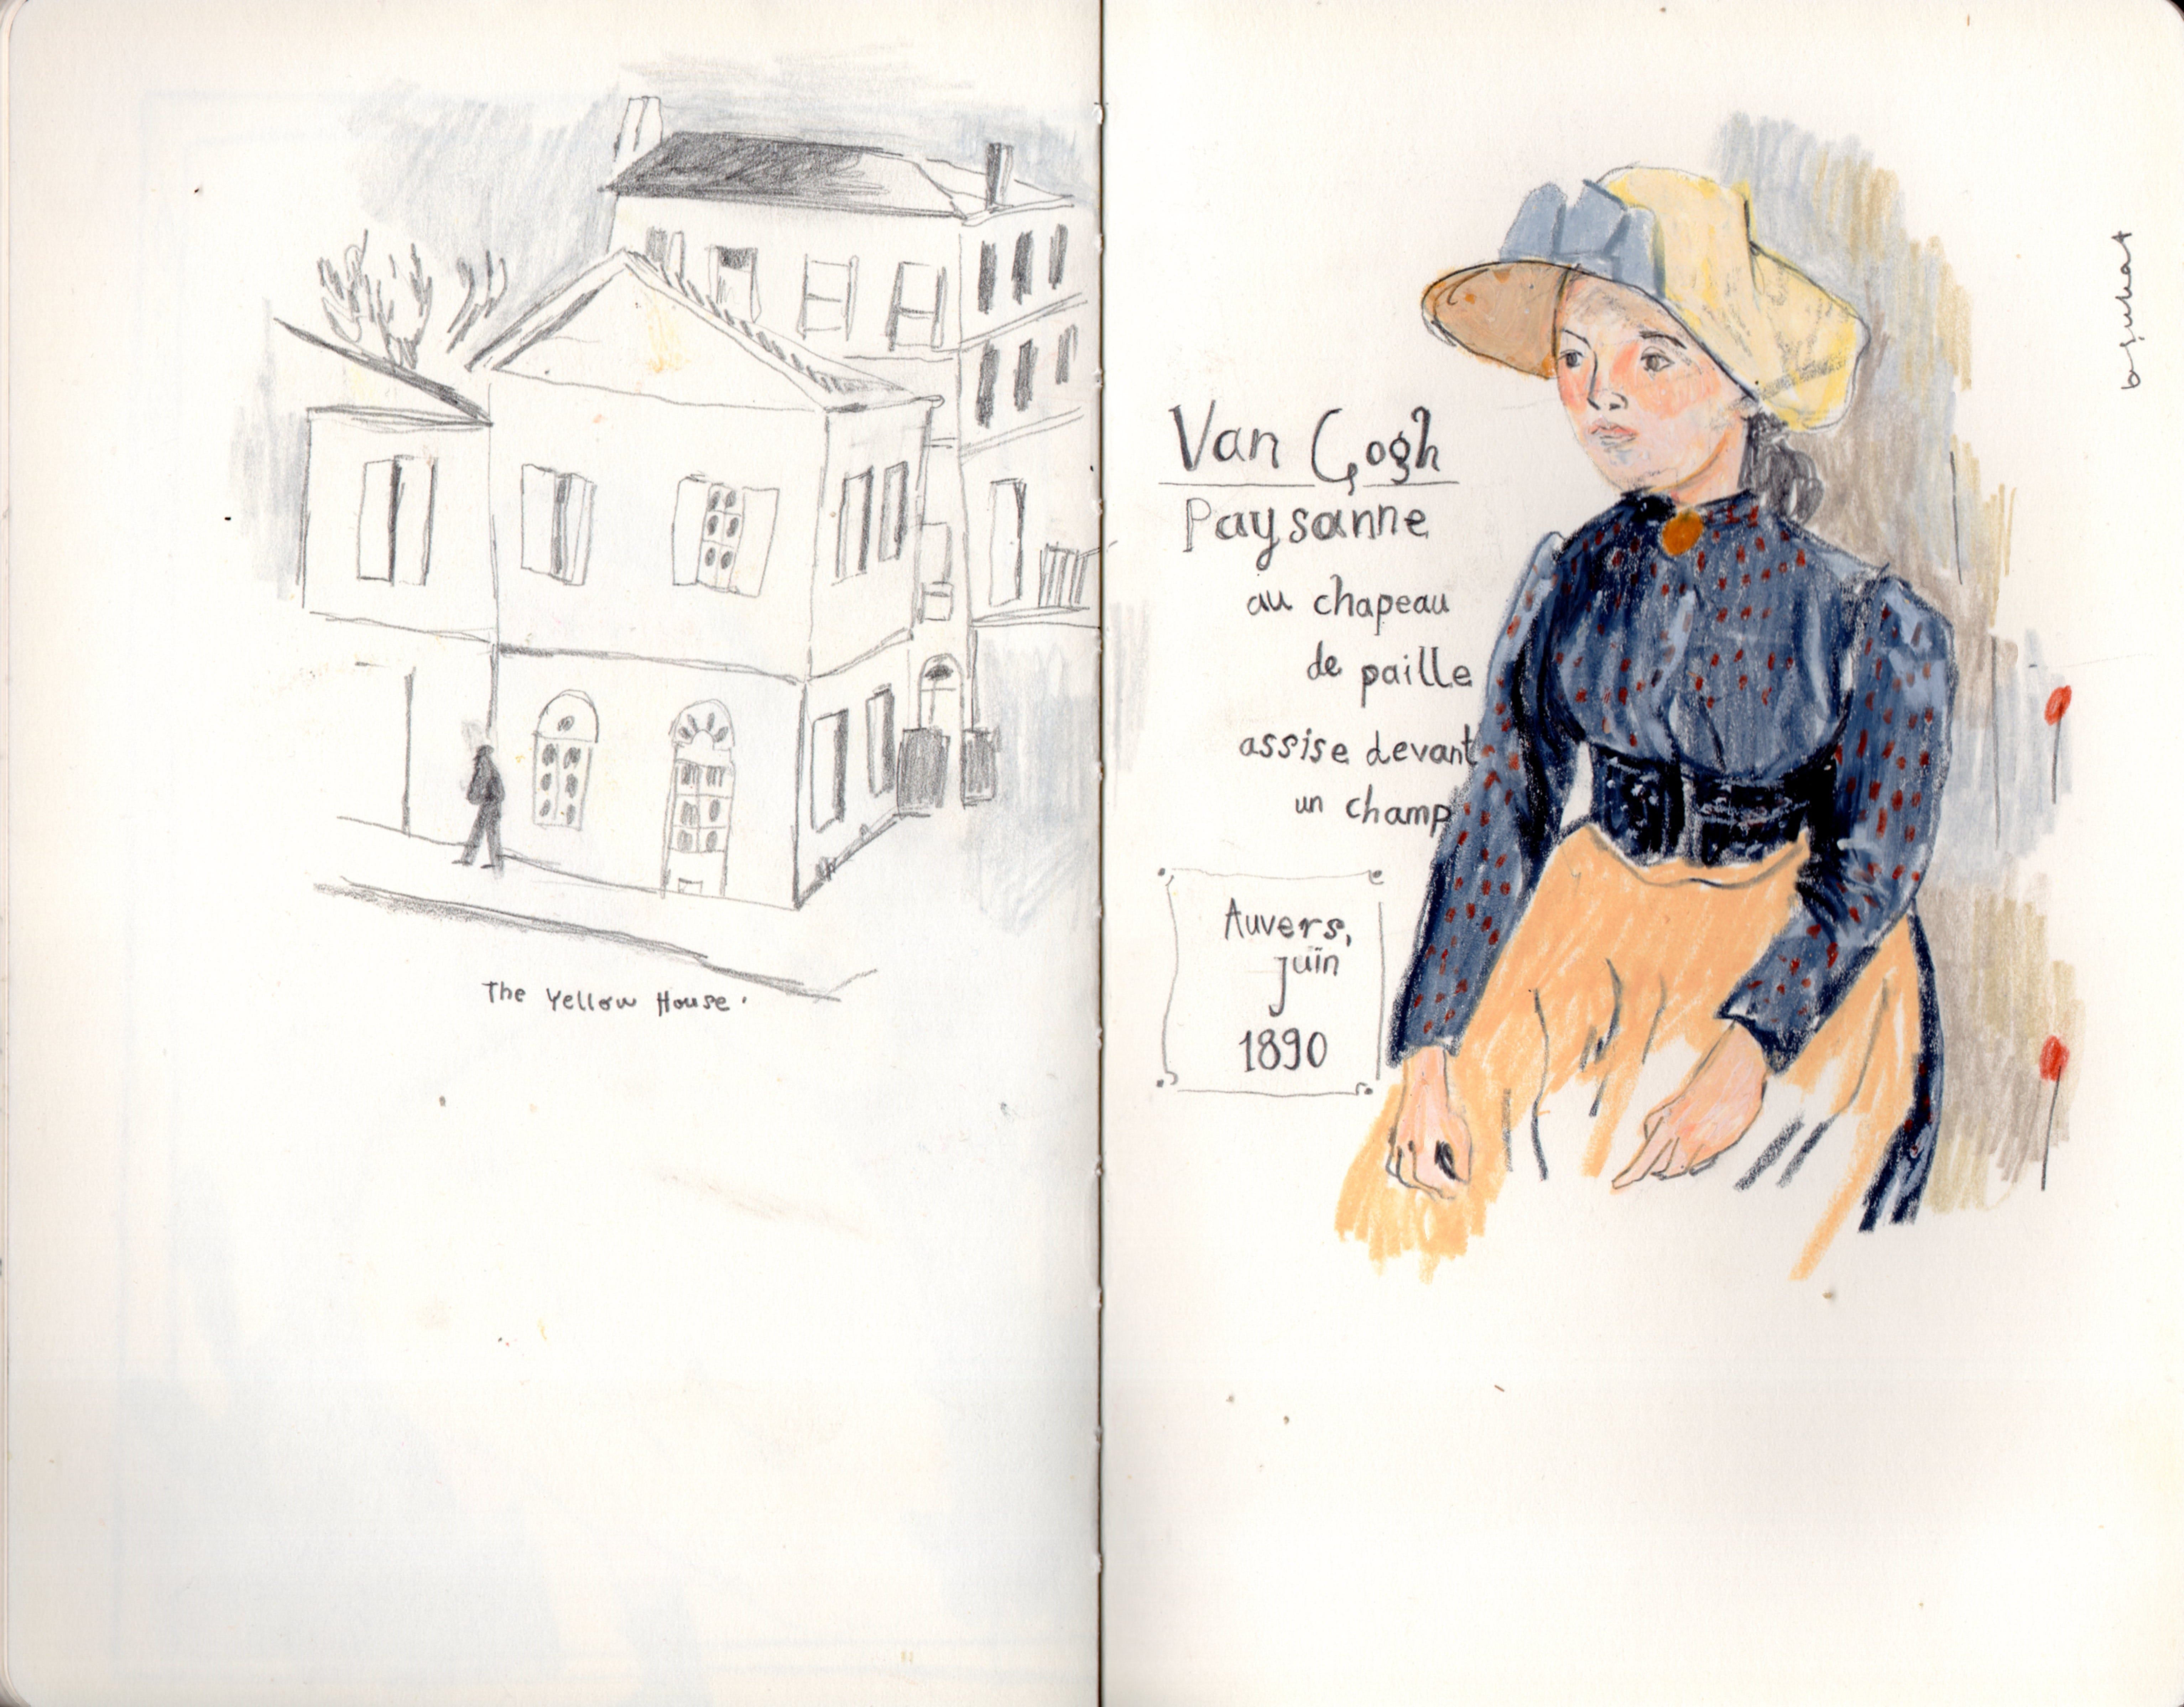 The Yellow House.
Van Gogh
Paysanne
au chapeau
de paille
assise devant
un champ
Auvers,
juin
1890